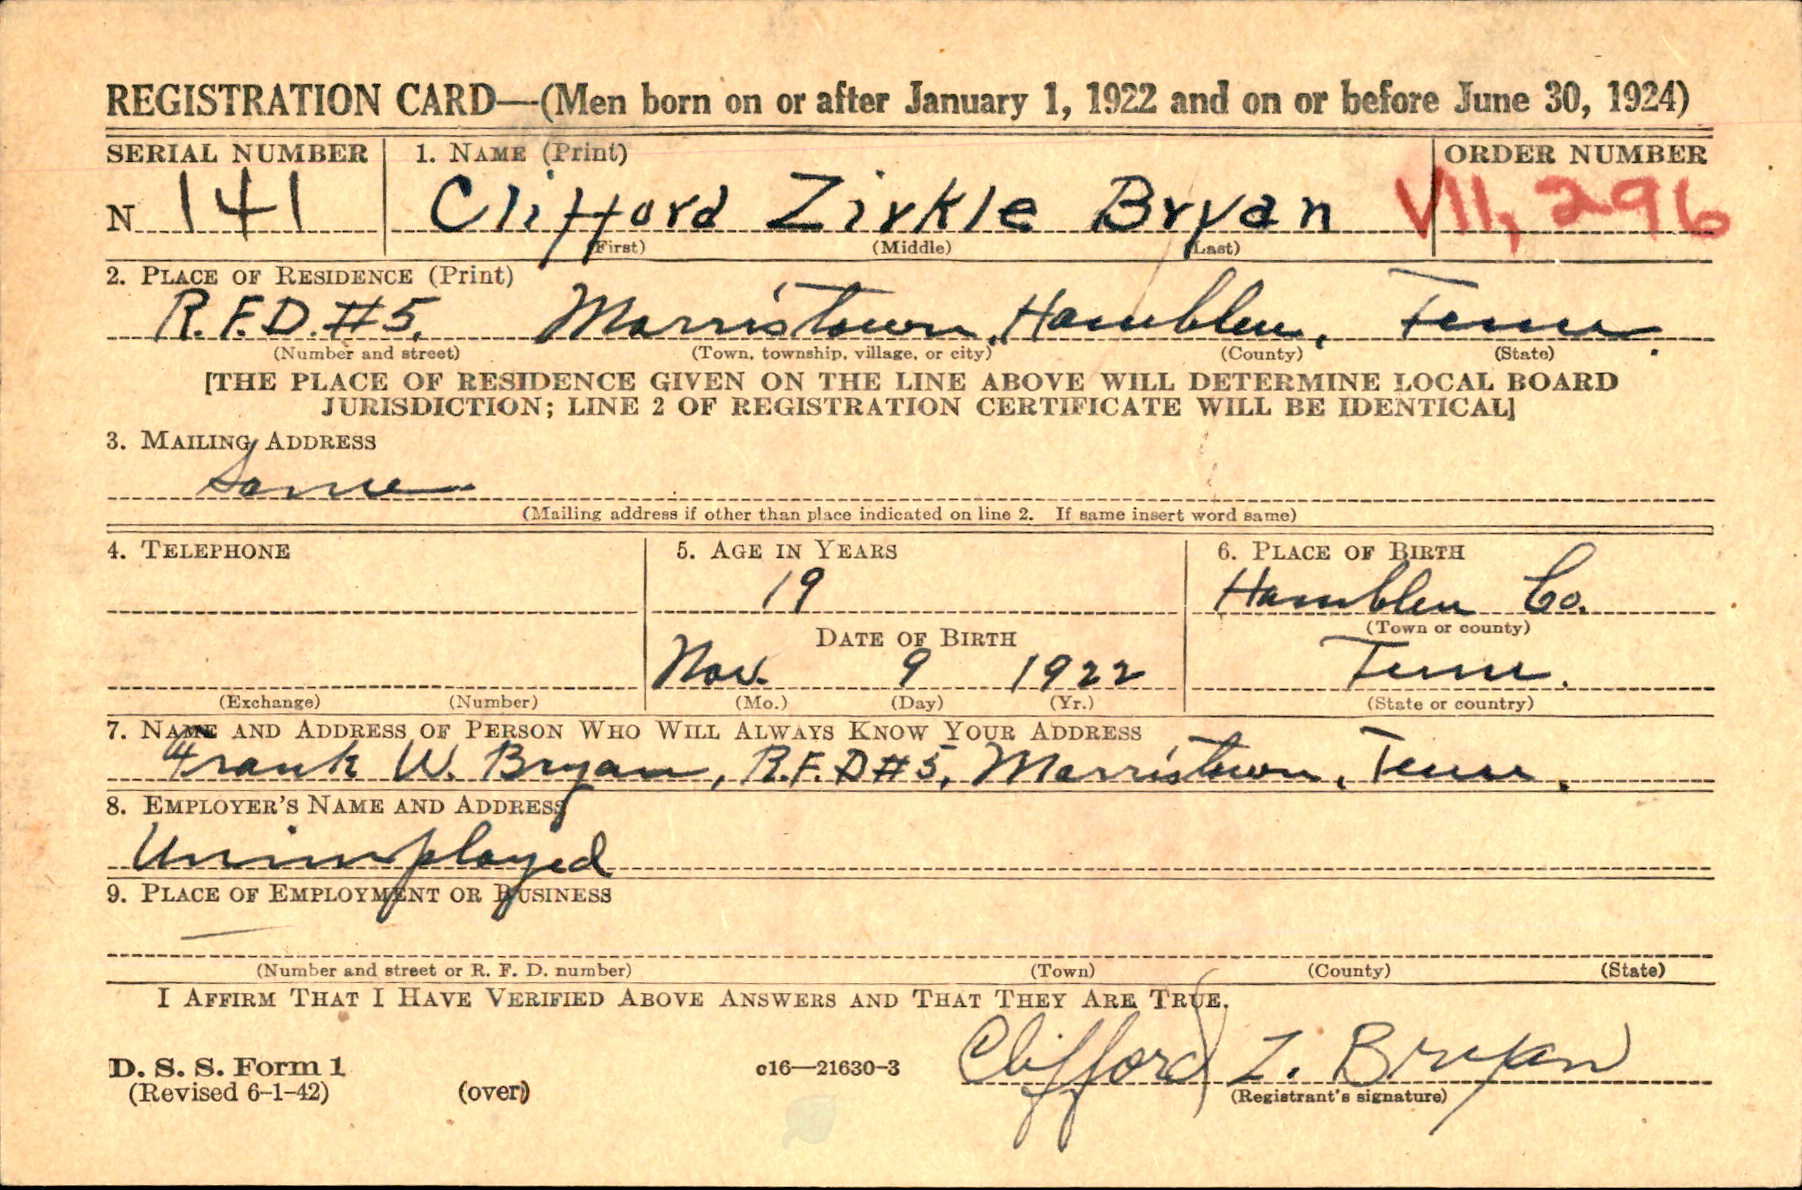 REGISTRATION CARD—(Men born on or after January 1, 1922 and on or before June 30, 1924)
SERIAL NUMBER 1. NAME (Print) ORDER NUMBER
N 141 Clifford Zirkle Bryan VII, 296
(First) (Middle) (Last)
2. PLACE OF RESIDENCE (Print)
R.F.D. #5, Morristown, Hamblen, Tenn.
(Number and street) (Town, township, village, or city) (County) (State)
[THE PLACE OF RESIDENCE GIVEN ON THE LINE ABOVE WILL DETERMINE LOCAL BOARD
JURISDICTION; LINE 2 OF REGISTRATION CERTIFICATE WILL BE IDENTICAL]
3. MAILING ADDRESS
Same
(Mailing address if other than place indicated on line 2. If same insert word same)
4. TELEPHONE 5. AGE IN YEARS 6. PLACE OF BIRTH
19 Hamblen Co.
(Town or county)
DATE OF BIRTH
Nov. 9 1922 Tenn.
(Exchange) (Number) (Mo.) (Day) (Yr.) (State or country)
7. NAME AND ADDRESS OF PERSON WHO WILL ALWAYS KNOW YOUR ADDRESS
Frank W. Bryan, R.F.D #5, Morristown, Tenn.
8. EMPLOYER'S NAME AND ADDRESS
Unimployed
9. PLACE OF EMPLOYMENT OR BUSINESS
—
(Number and street or R. F. D. number) (Town) (County) (State)
I AFFIRM THAT I HAVE VERIFIED ABOVE ANSWERS AND THAT THEY ARE TRUE.
D. S. S. Form 1 c16—21630-3 Clifford Z. Bryan
(Revised 6-1-42) (over) (Registrant's signature)